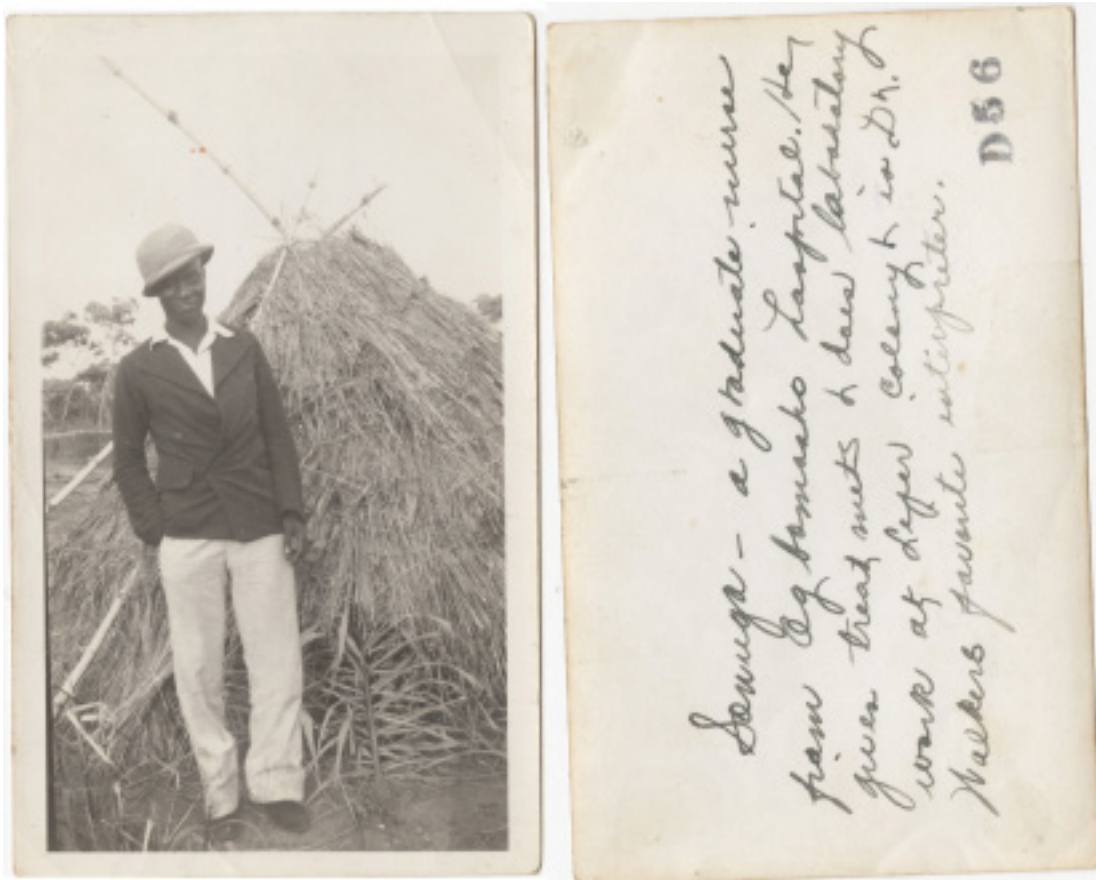 – a graduate nurse
from Ogbomosho hospital. He
gives treatments & does laboratory
work at Leper Colony & is Dr.
Walkers favorite interpreter.
D56